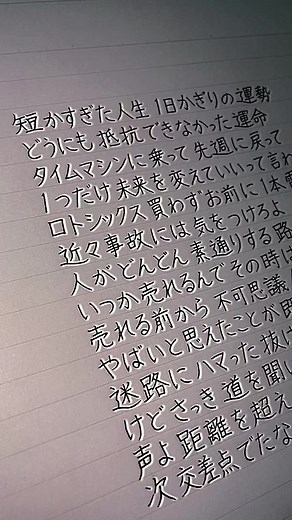 短かすぎた人生 1日かぎりの運勢
どうにも抵抗できなかった運命
タイムマシンに乗って先週に戻って
1つだけ未来を変えていいって言わ
ロトシックス買わずお前に1本電
近々事故には気をつけろよ
人がどんどん素通りする路
いつか売れるんでその時は
売れる前から不可思議
やばいと思えたことが
迷路にハマった抜け
けどさっき道を聞い
声よ距離を超え
次交差点でたな